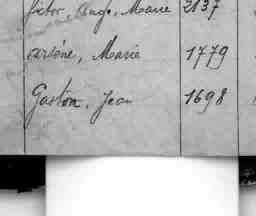 Victor, Ange, Marie 2137
Arsène, Marie 1779
Gaston, Jean 1698